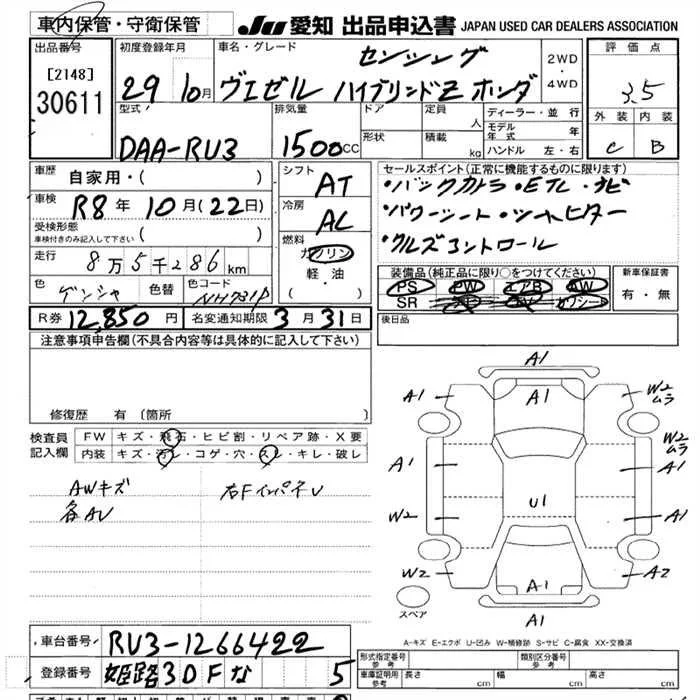 車内保管・守衛保管 JU 愛知 出品申込書 JAPAN USED CAR DEALERS ASSOCIATION
出品番号 初度登録年月 車名・グレード センシング 2WD ・ 4WD 評価点
[2148]
30611 29 10月 ヴェゼル ハイブリンドZ ホンダ 3.5
型式 排気量 ドア 定員 人 ディーラー・並行 外装 内装
モデル年式 年
DAA-RU3 1500cc 形状 積載 kg ハンドル 左・右 C B
車歴 自家用・( ) シフト AT セールスポイント(正常に機能するものに限ります)
車検 R8年10月(22日) 冷房 AC ・バックカメラ・ETC・ナビ
受検形態 車検付きのみ記入して下さい ( ) 燃料 ・パワーシート・シートヒーター
走行 8万5千286km ガソリン ・クルズコントロール
軽・油
色 ゲンシャ 色替 色コード NH731P ( ) 装備品(純正品に限り○をつけてください) 新車保証書
PS PW エアB AW 有・無
SR カワシート
R券 12,850円 名変通知期限 3月31日 後日品
注意事項申告欄(不具合内容等は具体的に記入して下さい)
修復歴 有 (箇所
検査員記入欄 FW キズ・飛石・ヒビ割・リペア跡・X要
内装 キズ・汚レ・コゲ・穴・スレ・キレ・破レ
AWキズ 右FインパネU
各AU
A1
A1 A1 W2ムラ
W2ムラ
A1 A1
U1
W2 A1
W2 A1 A2
スペア A1
A-キズ E-エクボ U-凹み W-補修跡 S-サビ C-腐食 XX-交換済
車台番号 RU3-1266422
登録番号 姫路 3DFな 5
形式指定番号 参考 類別区分番号 参考
車庫証明用 参考 長さ cm 幅 cm 高さ cm